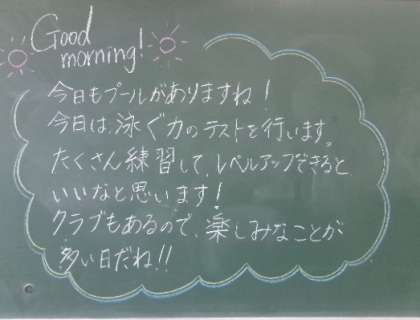 Good
morning!
今日もプールがありますね！
今日は、泳ぐ力のテストを行います。
たくさん練習して、レベルアップできると
いいなと思います！
クラブもあるので、楽しみなことが
多い日だね!!